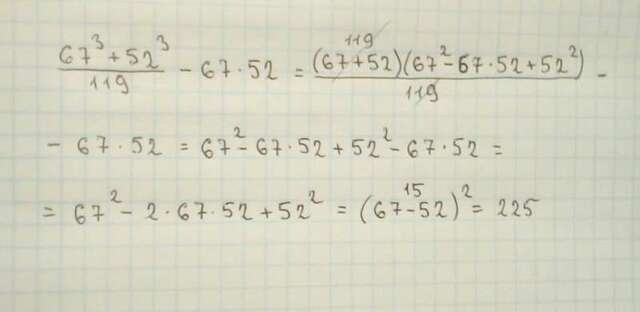 (67³ + 52³)/119 - 67 · 52 = (67 + 52)(67² - 67 · 52 + 52²)/119 -
119
- 67 · 52 = 67² - 67 · 52 + 52² - 67 · 52 =
= 67² - 2 · 67 · 52 + 52² = (67 - 52)² = 225
15